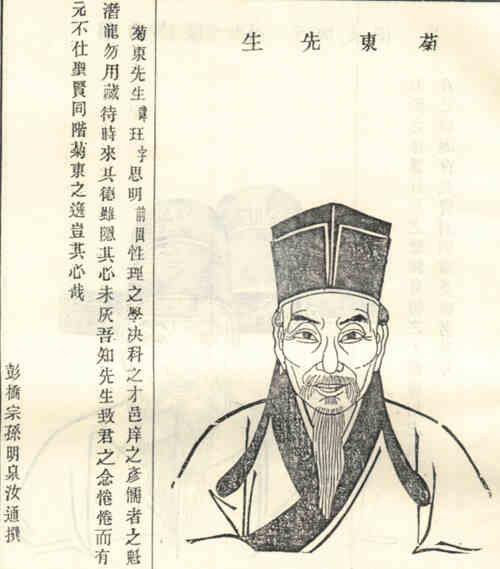 菊東先生
菊東先生諱玨字思明前性理之學决科之才邑庠之彥儒者之魁
潛龍勿用藏待時來其德雖隱其心未灰吾知先生致君之念惓惓而有
元不仕聖賢同階菊東之適豈其心哉
彭橋宗孫明泉汝通撰